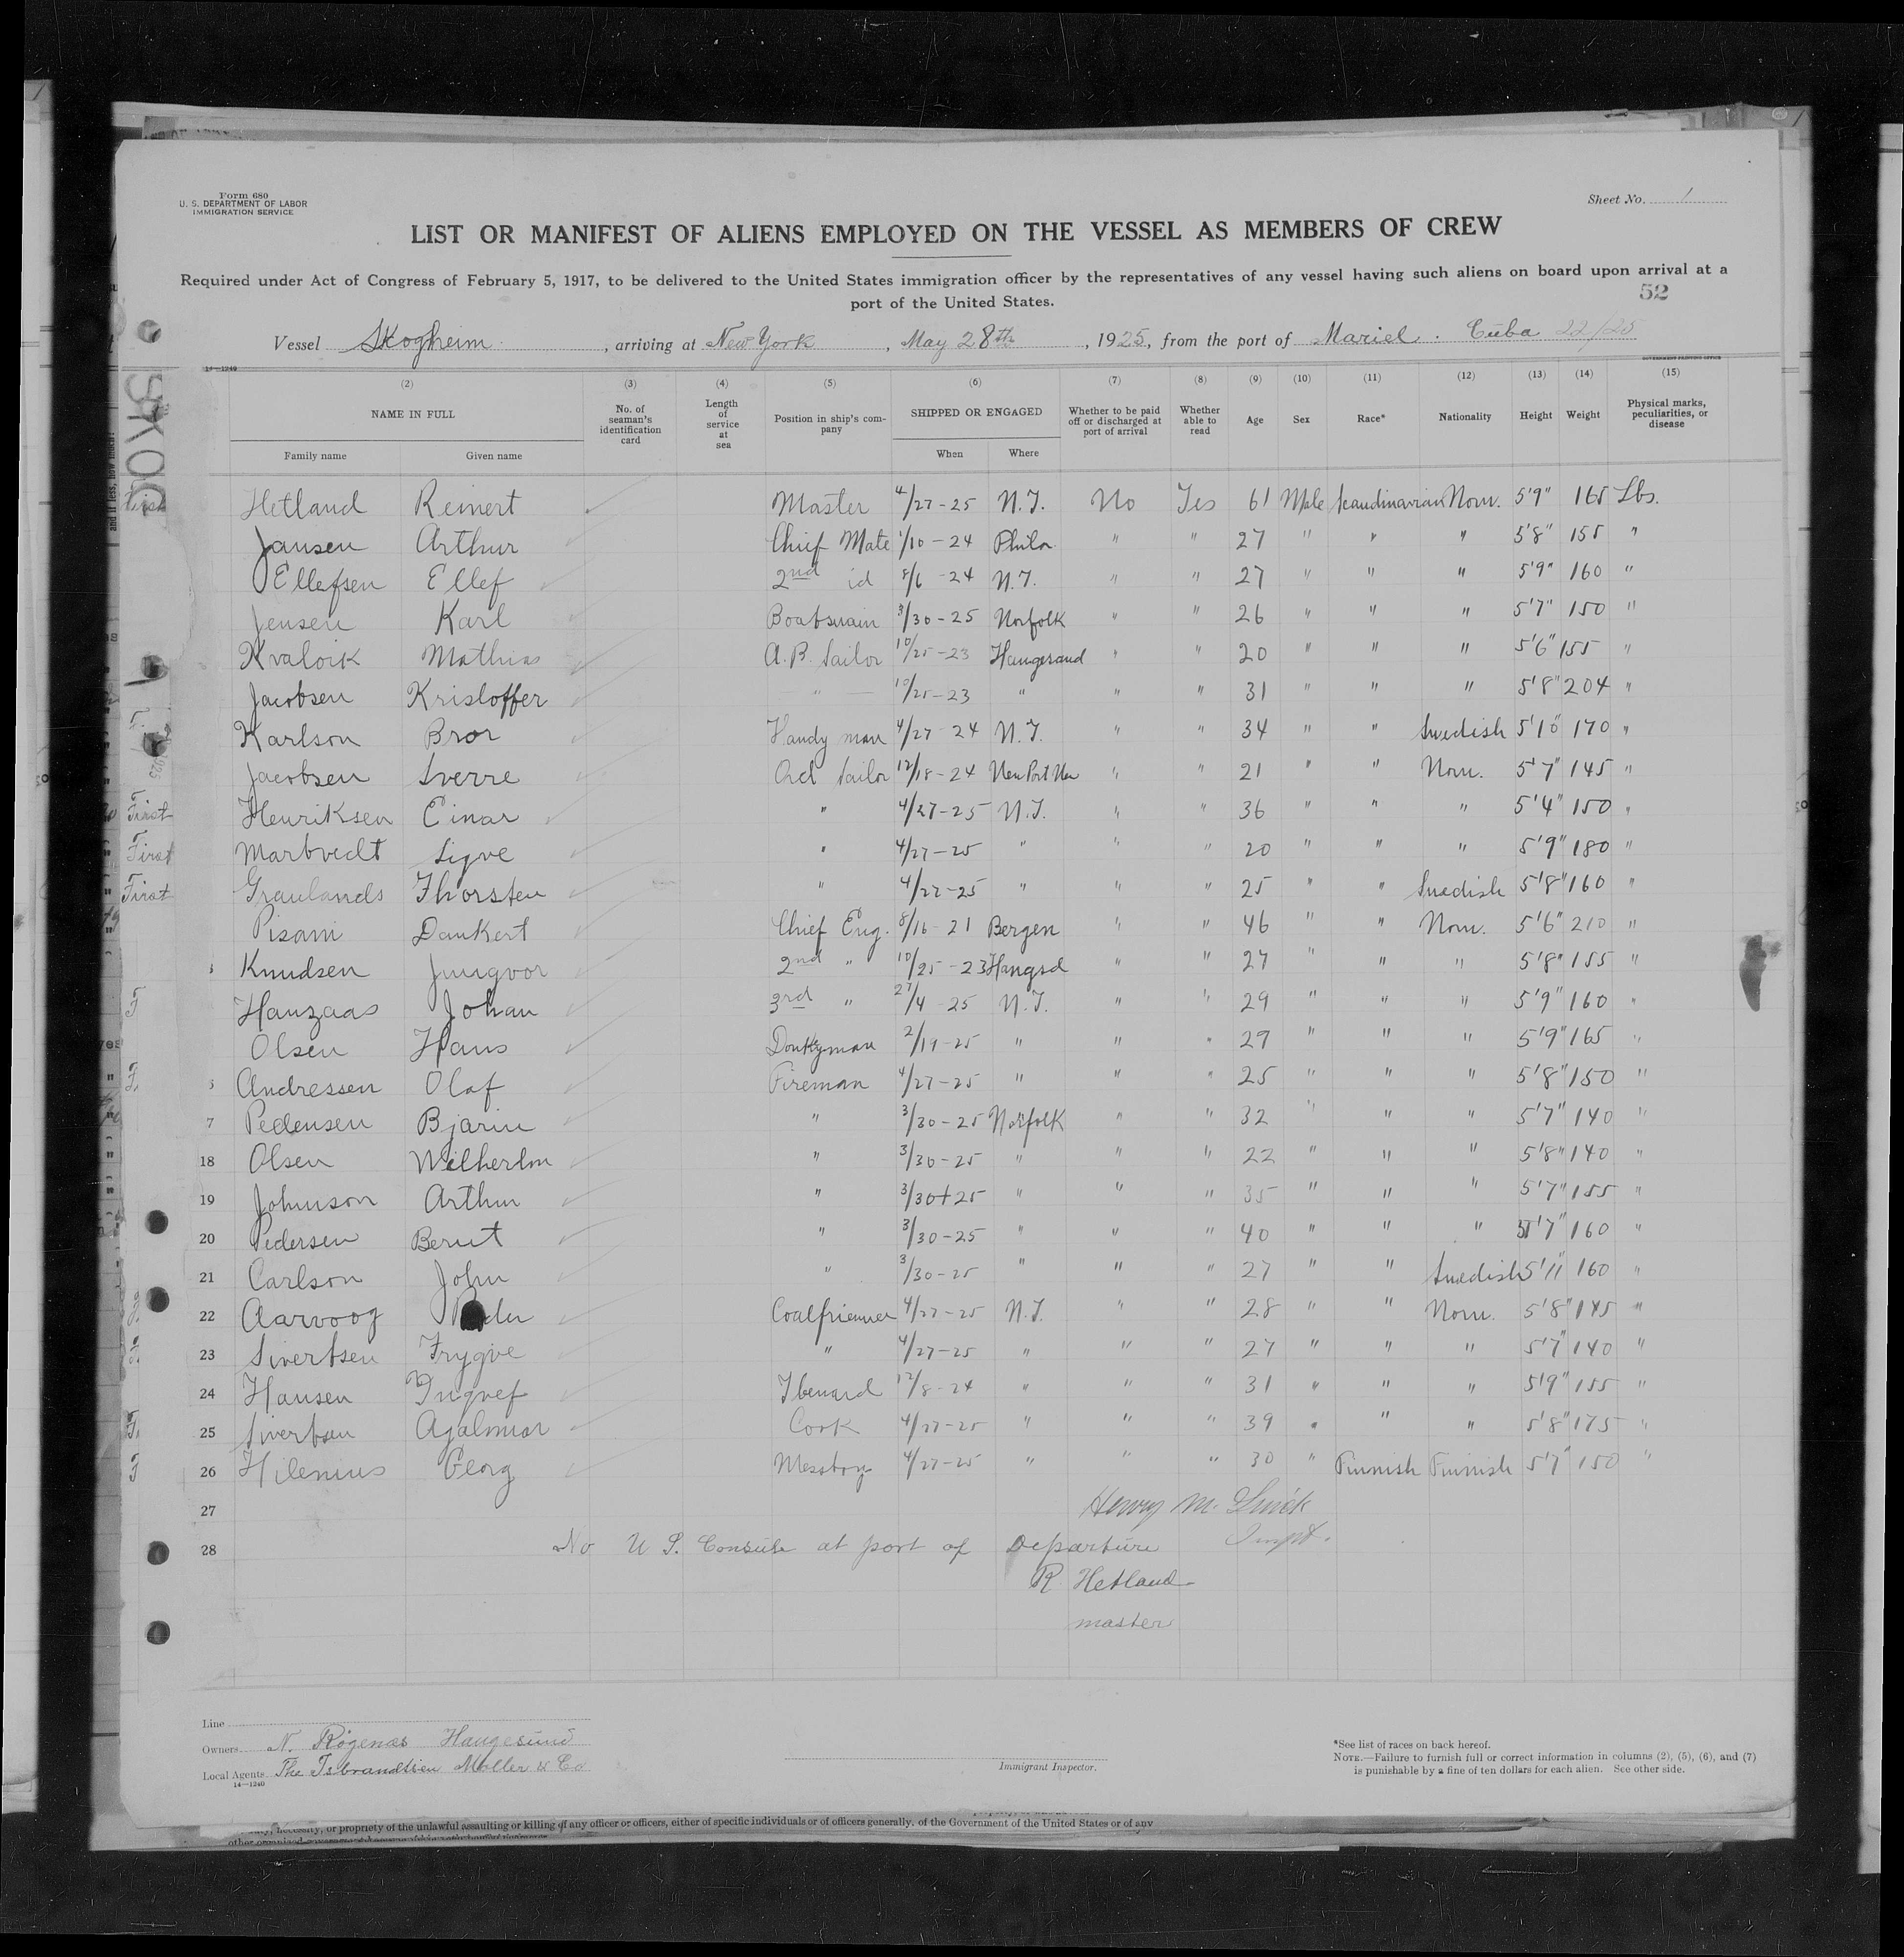 Form 680
U. S. DEPARTMENT OF LABOR
IMMIGRATION SERVICE
Sheet No. 1
LIST OR MANIFEST OF ALIENS EMPLOYED ON THE VESSEL AS MEMBERS OF CREW
Required under Act of Congress of February 5, 1917, to be delivered to the United States immigration officer by the representatives of any vessel having such aliens on board upon arrival at a
port of the United States.
52
Vessel Skogheim, arriving at New York, May 28th, 1925, from the port of Mariel. Cuba 22/25
14—1240
(2) (3) (4) (5) (6) (7) (8) (9) (10) (11) (12) (13) (14) (15)
NAME IN FULL No. of seaman's identification card Length of service at sea Position in ship's company SHIPPED OR ENGAGED Whether to be paid off or discharged at port of arrival Whether able to read Age Sex Race* Nationality Height Weight Physical marks, peculiarities, or disease
Family name Given name When Where
Hetland Reinert Master 4/27-25 N.Y. No Yes 61 Male Scandinavian Norw. 5'9" 165 Lbs.
Jansen Arthur Chief Mate 1/10-24 Phila. " " 27 " " " 5'8" 155 "
Ellefsen Ellef 2nd id 8/6-24 N.Y. " " 27 " " " 5'9" 160 "
Jensen Karl Boatswain 3/30-25 Norfolk " " 26 " " " 5'7" 150 "
Kvaloik Mathias A.B. Sailor 10/25-23 Haugesund " " 20 " " " 5'6" 155 "
Jacobsen Kristoffer " 10/25-23 " " " 31 " " " 5'8" 204 "
Karlson Bror Handy man 4/27 24 N.Y. " " 34 " " Swedish 5'10 170 "
Jacobsen Sverre Ord Sailor 12/18-24 New Port New " " 21 " " Norw. 5'7" 145 "
First Henriksen Einar " 4/27-25 N.Y. " " 36 " " " 5'4" 150 "
First Martvedt Sigve " 4/27-25 " " " 20 " " " 5'9" 180 "
First Graulands Thorsten " 4/27-25 " " " 25 " " Swedish 5'8" 160 "
Pisani Dankert Chief Eng. 8/16-21 Bergen " " 46 " " Norw. 5'6" 210 "
Knudsen Jungvor 2nd " 10/25-23 Haugsd " " 27 " " " 5'8" 155 "
Hanzaas Johan 3rd " 27/4-25 N.Y. " " 29 " " " 5'9" 160 "
Olsen Hans Donkyman 2/19-25 " " " 27 " " " 5'9" 165 "
Andressen Olaf Fireman 4/27-25 " " " 25 " " " 5'8" 150 "
7 Pedensen Bjarin " 3/30-25 Norfolk " " 32 " " " 5'7" 140 "
18 Olsen Wilherlm " 3/30-25 " " " 22 " " " 5'8" 140 "
19 Johnson Arthur " 3/30+25 " " " 35 " " " 5'7" 155 "
20 Pedersen Bernt " 3/30-25 " " " 40 " " " 5'7" 160 "
21 Carlson John " 3/30-25 " " " 27 " " Swedish 5'11 160 "
22 Aarvoog Coalfriemer 4/27-25 N.Y. " " 28 " " Norw. 5'8" 145 "
23 Sivertsen Trygve " 4/27-25 " " " 27 " " " 5'7" 140 "
24 Hansen Yngvef 12/8-24 " " " 31 " " " 5'9" 155 "
25 Sivertsen Agalmar Cook 4/27-25 " " " 39 " " " 5'8" 175 "
26 Hilenius Georg Messboy 4/27-25 " " " 30 " Finnish Finnish 5'7" 150 "
27 Henry M.
28 No U S. Consule at port of Departure Inspt.
R Hetland
master
Line
Owners N. Rogenas Haugesund
Local Agents The Isbrandtsen Moller & Co
14—1240
Immigrant Inspector.
*See list of races on back hereof.
NOTE.—Failure to furnish full or correct information in columns (2), (5), (6), and (7)
is punishable by a fine of ten dollars for each alien. See other side.
necessity, or propriety of the unlawful assaulting or killing of any officer or officers, either of specific individuals or of officers generally, of the Government of the United States or of any